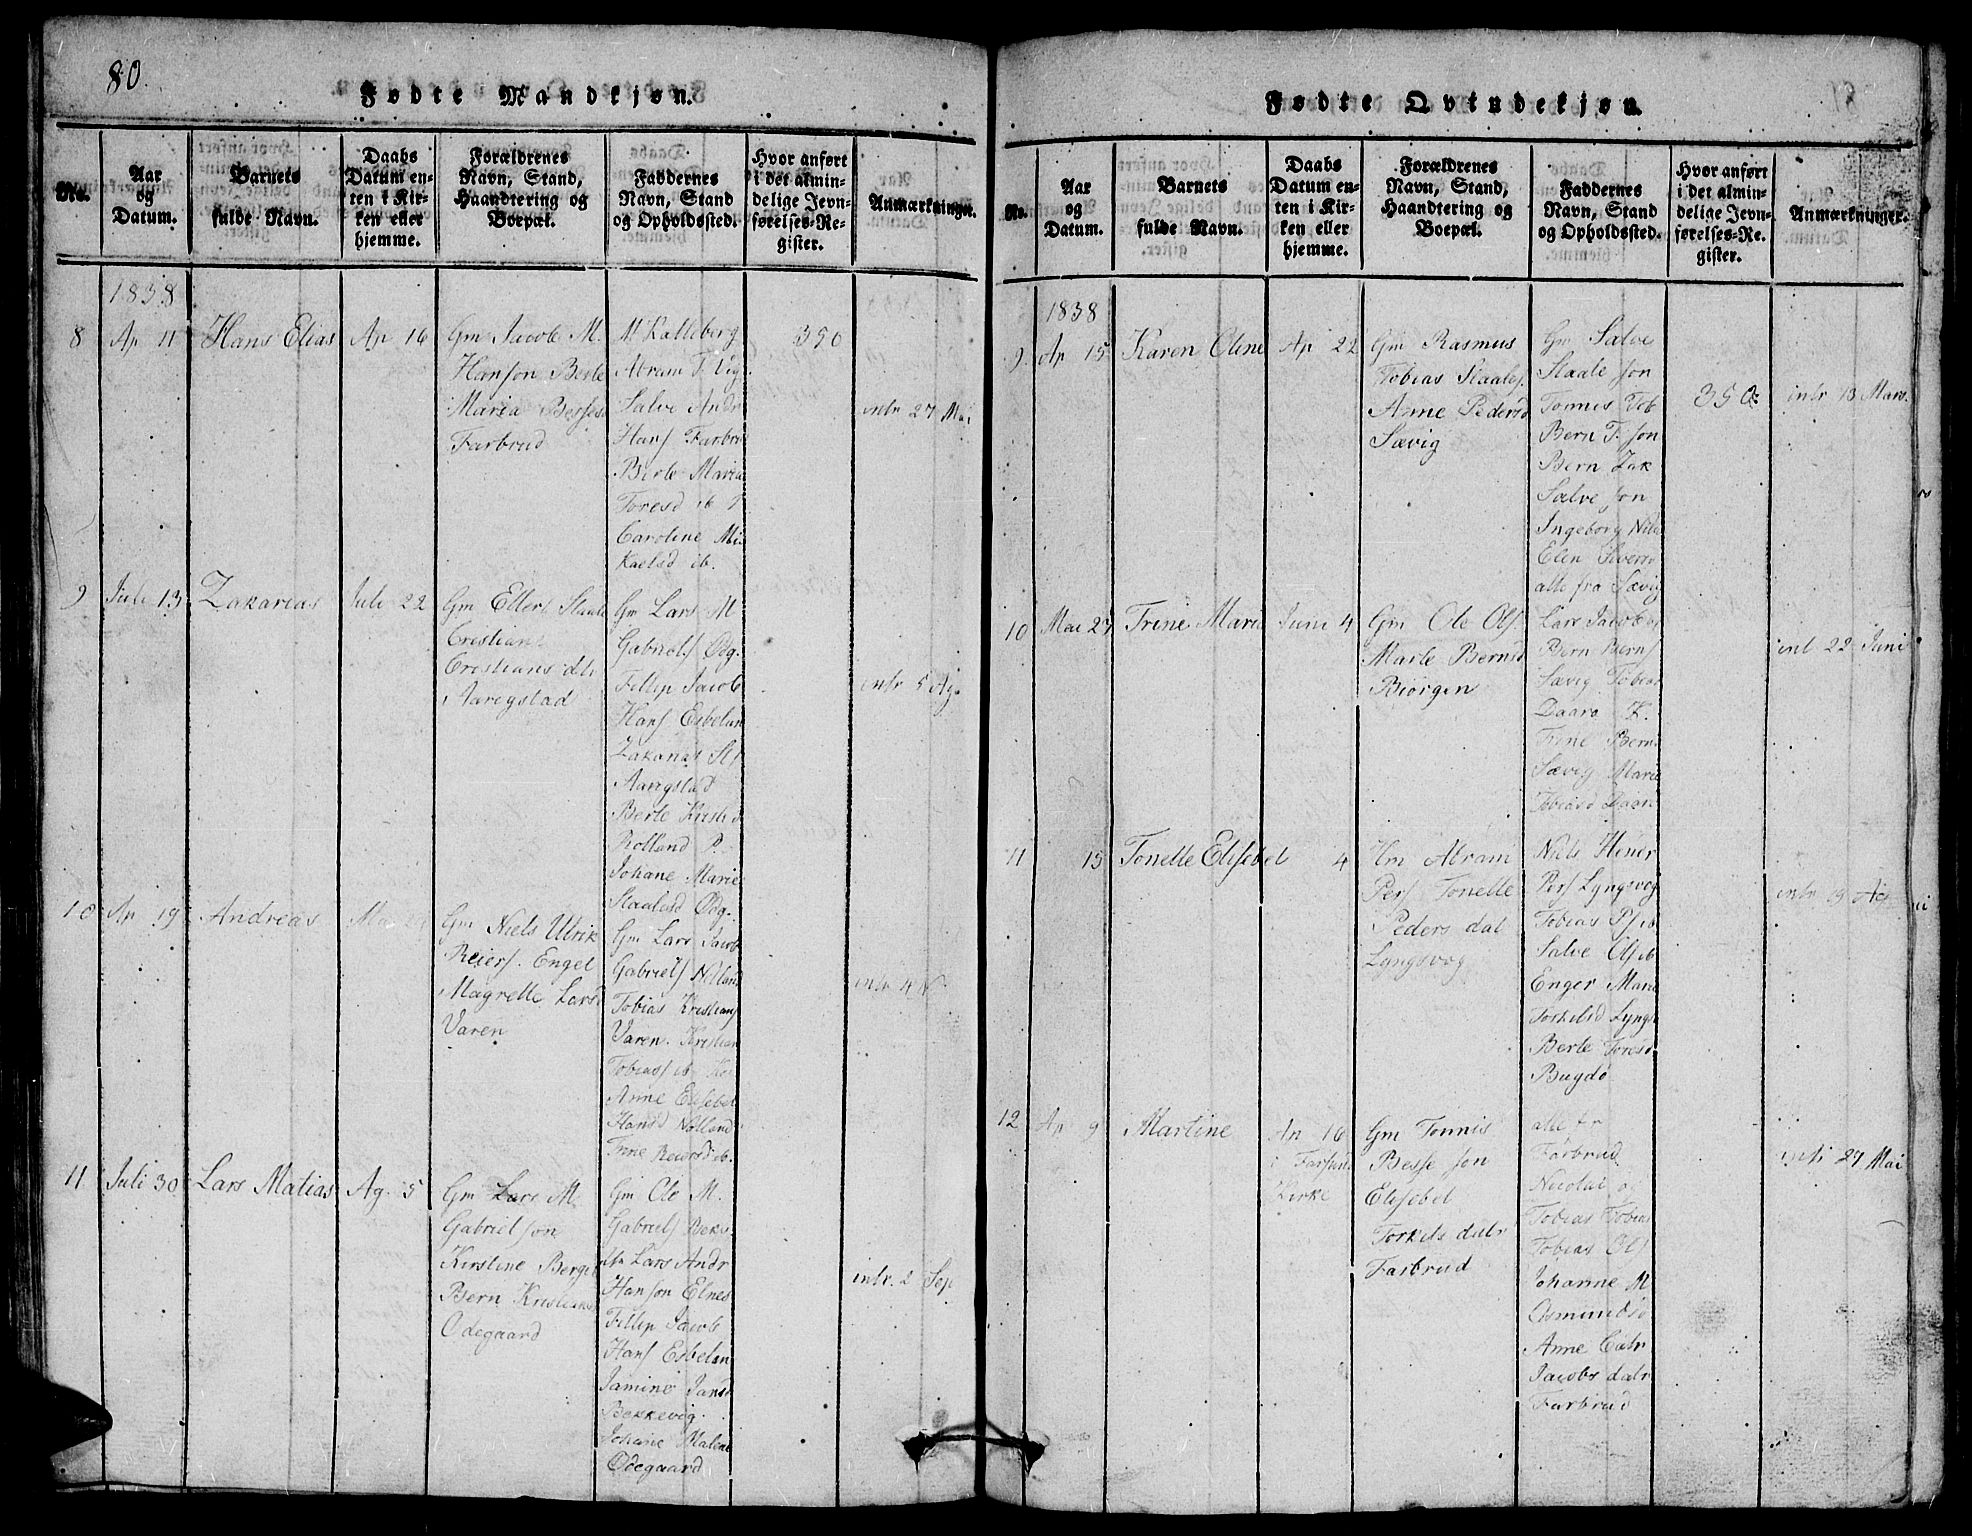 80.
Fødte Mandkjøn.
No.
Aar
og
Datum.
Barnets
fulde Navn.
Daabs
Datum en-
ten i Kir-
ken eller
hjemme.
Forældrenes
Navn, Stand,
Haandtering og
Boepæl.
Faddernes
Navn, Stand
og Opholdssted.
Hvor anført
i det almin-
delige Jevn-
førelses-Re-
gister.
Anmærkninger.
1838
8 Ap 11 Hans Elias Ap 16
Gm Jacob M.
Hanson Berte
Maria Besses
Farbrud
M Kalleberg
Abram T. Vig
Salve Andr
Hans Farbru
Berte Maria
Toresd ib
Caroline Mi
kaelsd ib.
350
intr 27 Mai
9 Juli 13 Zakarias Juli 22
Gm Ellert Staale
Cristian
Cristians dtr
Aaregstad
Gm Lars M
Gabriels Ødg.
Fillip Jacob
Hans Eibelan
Zakarias St
Aaregstad
Berte Kirst d
Rolland P.
Johane Marie
Staalesd Ødg.
intr 5 Ag.
10 Ap 19 Andreas
Gm Niels Ulrik
Reiers. Engel
Magrette Larsd
Varen
Gm Lars Jacob
Gabriels Nolland
Tobias Kristians
Varen. Kristian
Tobiass ib
Anne Elisebet
Hansd Nolland
Trine Reiersd ib.
intr 4
11 Juli 30 Lars Matias Ag. 5
Gm Lars M.
Gabriel son
Kirstine Berget
Bern Kristians
Odegaard
Gm Ole M.
Gabriels Bekv.
Lars Andr
Hanson Elnes
Fillip Jacob
Hans Eibelan
Jamine Jansd
Bekkevig.
Johane Malene
Odegaard
intr. 2 Sep
Fødte Qvindekjøn.
Nr.
Aar
og
Datum.
Barnets
fulde Navn.
Daabs
Datum en-
ten i Kir-
ken eller
hjemme.
Forældrenes
Navn, Stand,
Haandtering og
Boepæl.
Faddernes
Navn, Stand
og Opholdssted.
Hvor anført
i det almin-
delige Jevn-
førelses-Re-
gister.
Anmærkninger.
1838
9. Ap 15 Karen Oline Ap 22
Gm Rasmus
Tobias Staales.
Anne Pedersd
Sævig
Gm Salve
Staale son
Tonnes Tob
Bern T. son
Bern Zak
Salve son
Ingeborg Nils
Elen Siversd
alle fra Sævig
350
intr 13 Mars.
10 Mai 27 Trine Marie Juni 4
Gm Ole Ols.
Marte Bernsd
Biörgen
Lars Jacobs
Bern Berns
Sævig Tobias
Daaro K.
Trine Berns
Sævig Marie
Tobiasd Daar
intr 22 Juni
11 15 Tonette Elisebet 4
Gm Abram
Pers Tonette
Peders dat
Lyngsvog
Niels Hener
Pers Lyngsvog
Tobias Ps ib
Salve Ols ib
Enger Marie
Torkelsd Lyngs
Berte Toresd
Bugdø
intr 19 Ag
12 Ap 9 Martine Ap 16
i Farsund
Kirke
Gm Tonnis
Besse son
Elisebet
Torkels datr
Farbrud
alle fr
Farbrud
Nicolai o
Tobias Tobias
Tobias Ols
Johanne M
Osmundsd
Anne Catr
Jacobs datr
Farbrud
intr 27 Mai